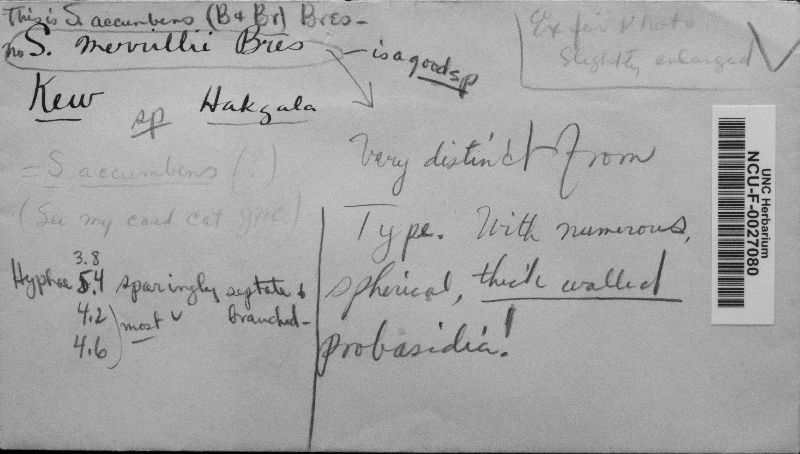 This is S. accumbens (B & Br) Bres -
no S. merrillii Bres - is a good sp
Ex for Photo
slightly enlarged
Kew sp Hakgala
= S. accumbens (?)
(See my card cat JNC)
Very distinct from
Type. With numerous,
spherical, thick walled
probasidia!
3.8
Hyphae 5.4 sparingly septate &
4.2 most branched -
4.6
UNC Herbarium
NCU-F-0027080